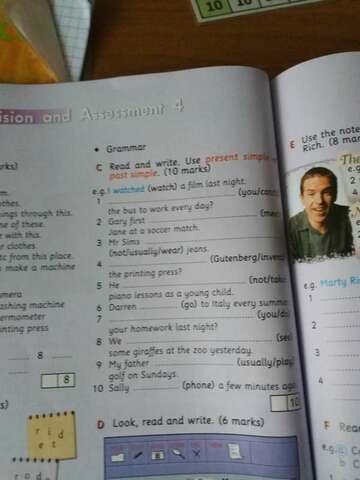 10 10
ision and Assessment 4
• Grammar
C Read and write. Use present simple
past simple. (10 marks)
e.g. I watched (watch) a film last night.
1 (you/catch)
the bus to work every day?
2 Gary first
Jane at a soccer match.
3 Mr Sims
(not/usually/wear) jeans.
4 (Gutenberg/invent)
the printing press?
5 He (not/take)
piano lessons as a young child.
6 Darren (go) to Italy every summer
7 (you/do)
your homework last night?
8 We (see)
some giraffes at the zoo yesterday.
9 My father (usually/play)
golf on Sundays.
10 Sally (phone) a few minutes ago
10
D Look, read and write. (6 marks)
rks)
things through this.
ne of these.
r with this.
r clothes.
tc from this place.
o make a machine
mera
ashing machine
ermometer
inting press
8
8
8
s)
r i d
e t
r o d
E Use the note
Rich. (8 mar
The
e.g.
2
4
e.g. Marty Ri
1
2
3
4
F Read
e.g.
b